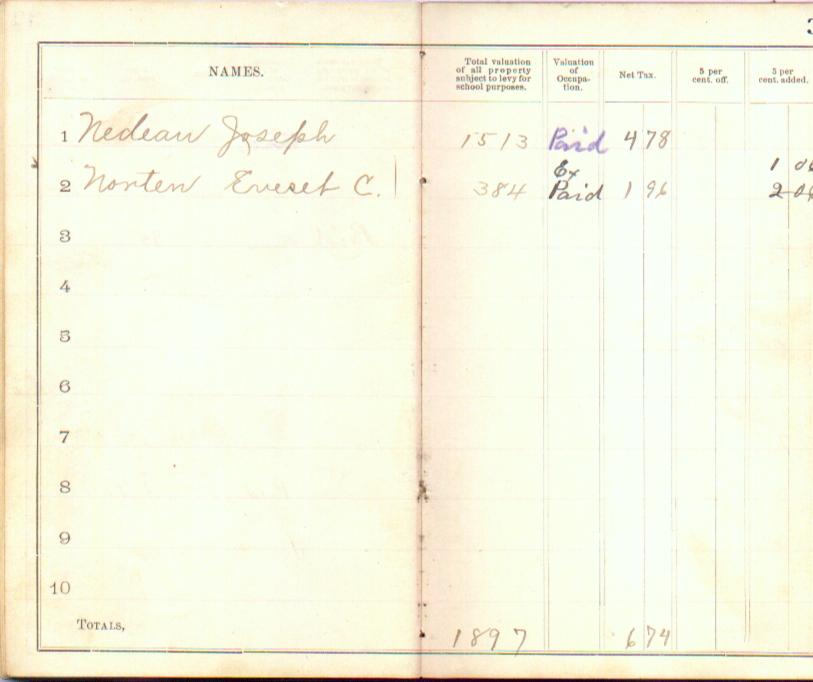 NAMES. Total valuation of all property subject to levy for school purposes. Valuation of Occupation. Net Tax. 5 per cent. off. 5 per cent. added.
1 Nedeau Joseph 1513 Paid 4 78
Ex 1
2 Norten Eveset C. 384 Paid 1 96 2
3
4
5
6
7
8
9
10
TOTALS, 1897 6 74